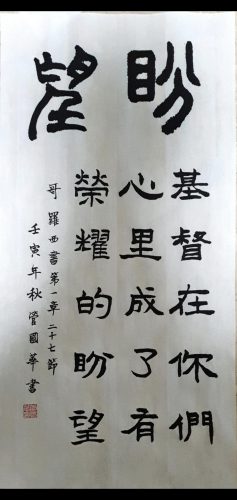 盼望
基督在你們
心里成了有
榮耀的盼望
哥羅西書第一章二十七節
壬寅年秋管國華書